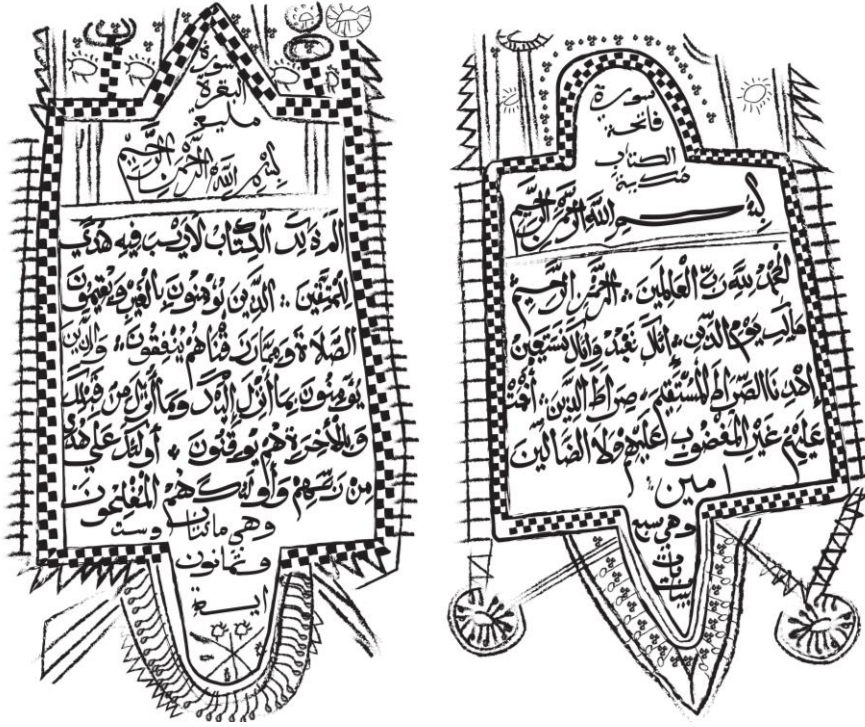 سورة
فاتحة
الكتاب
مكية
بسم الله الرحمن الرحيم
الحمد لله رب العالمين الرحمن الرحيم
مالك يوم الدين إياك نعبد وإياك نستعين
إهدنا الصراط المستقيم صراط الذين أنعمت
عليهم غير المغضوب عليهم ولا الضالين
امين
وهي سبع
سورة
البقرة
بسم الله الرحمن الرحيم
الم ذلك الكتاب لا ريب فيه هدى
للمتقين الذين يؤمنون بالغيب ويقيمون
الصلاة ومما رزقناهم ينفقون والذين
يؤمنون بما أنزل إليك وما أنزل من قبلك
وبالأخرة هم يوقنون أولئك على هدى
من ربهم وأولئك هم المفلحون
وهي مائتان وست
وثمانون
اية